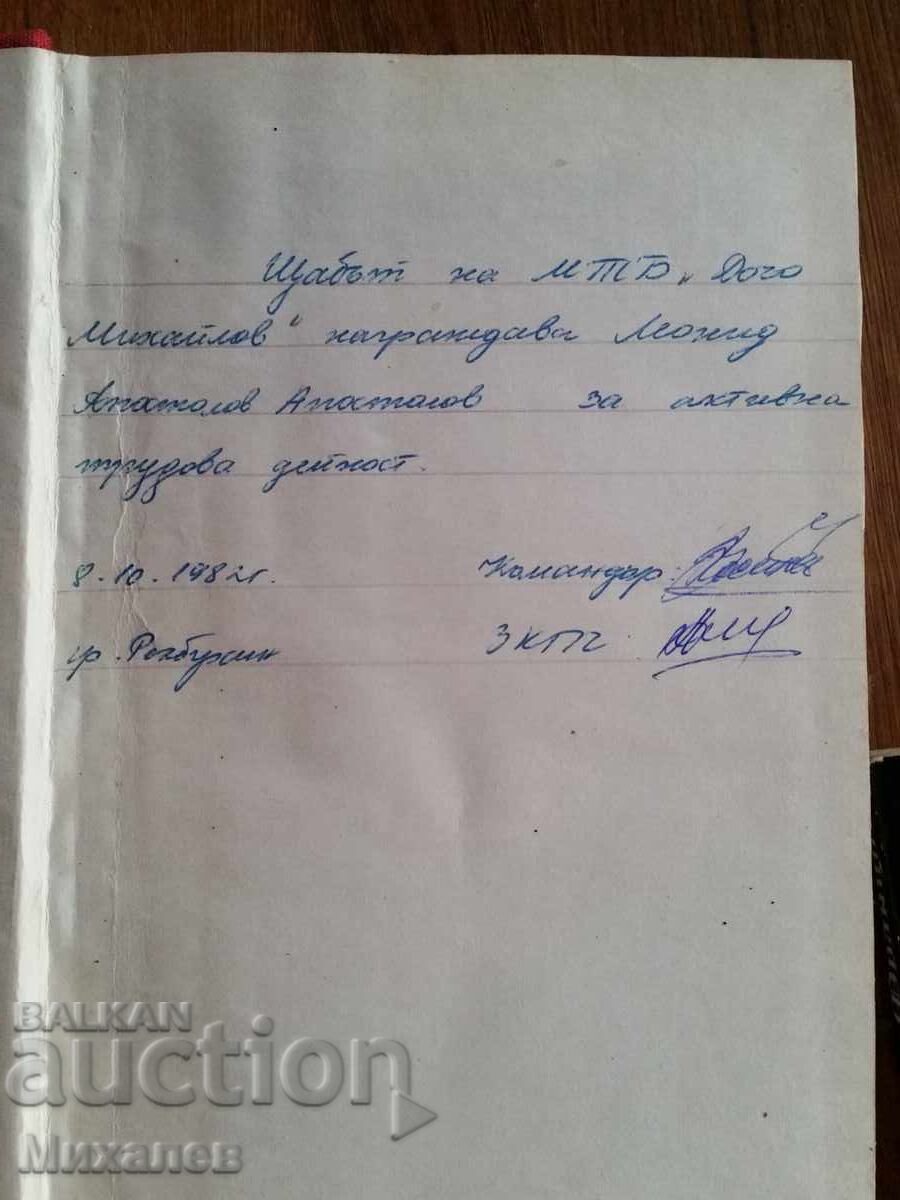 Щабът на МТБ „Дочо
Михайлов“ награждава Леонид
Апостолов Апостолов за активна
трудова дейност.
8.10.1982г. Командир:
гр. ЗКПЧ:
BALKAN
auction
Михалев